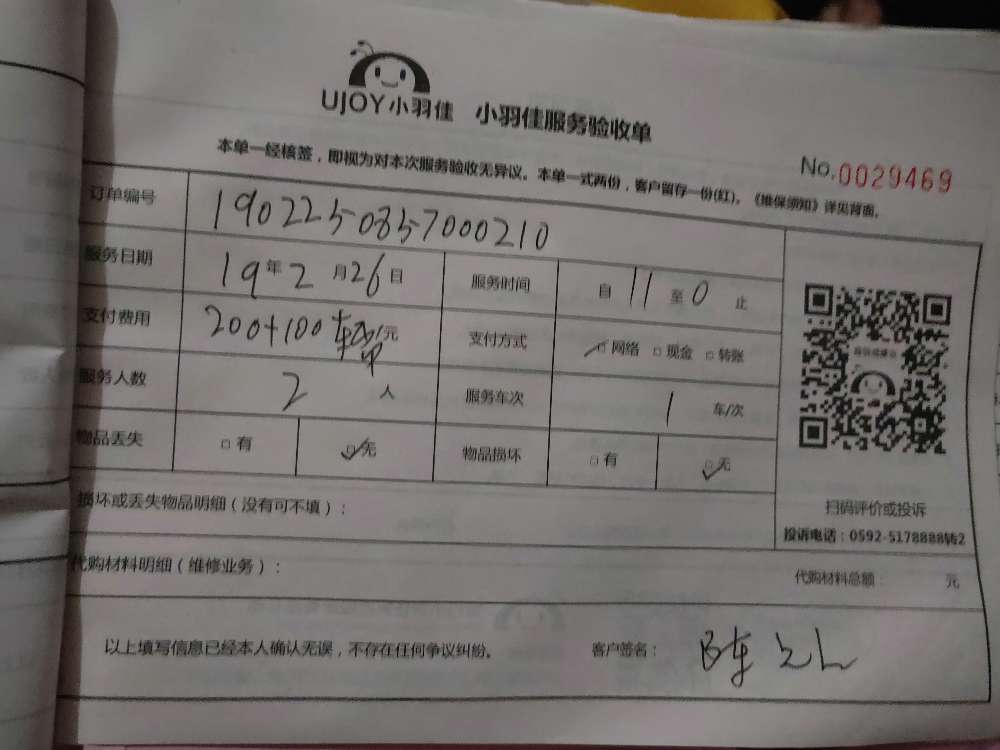 UJOY小羽佳 小羽佳服务验收单
No.0029469
本单一经核签，即视为对本次服务验收无异议。本单一式两份，客户留存一份(红)。《维保须知》详见背面。
订单编号 1902250857000210
服务日期 19年2月26日 服务时间 自11至0止
支付费用 200+100 元 支付方式 □网络 □现金 □转账
服务人数 2人 服务车次 1车/次
物品丢失 □有 ☑无 物品损坏 □有 ☑无
损坏或丢失物品明细（没有可不填）：
扫码评价或投诉
投诉电话：0592-5178888转2
代购材料明细（维修业务）： 代购材料总额： 元
以上填写信息已经本人确认无误，不存在任何争议纠纷。 客户签名：陈